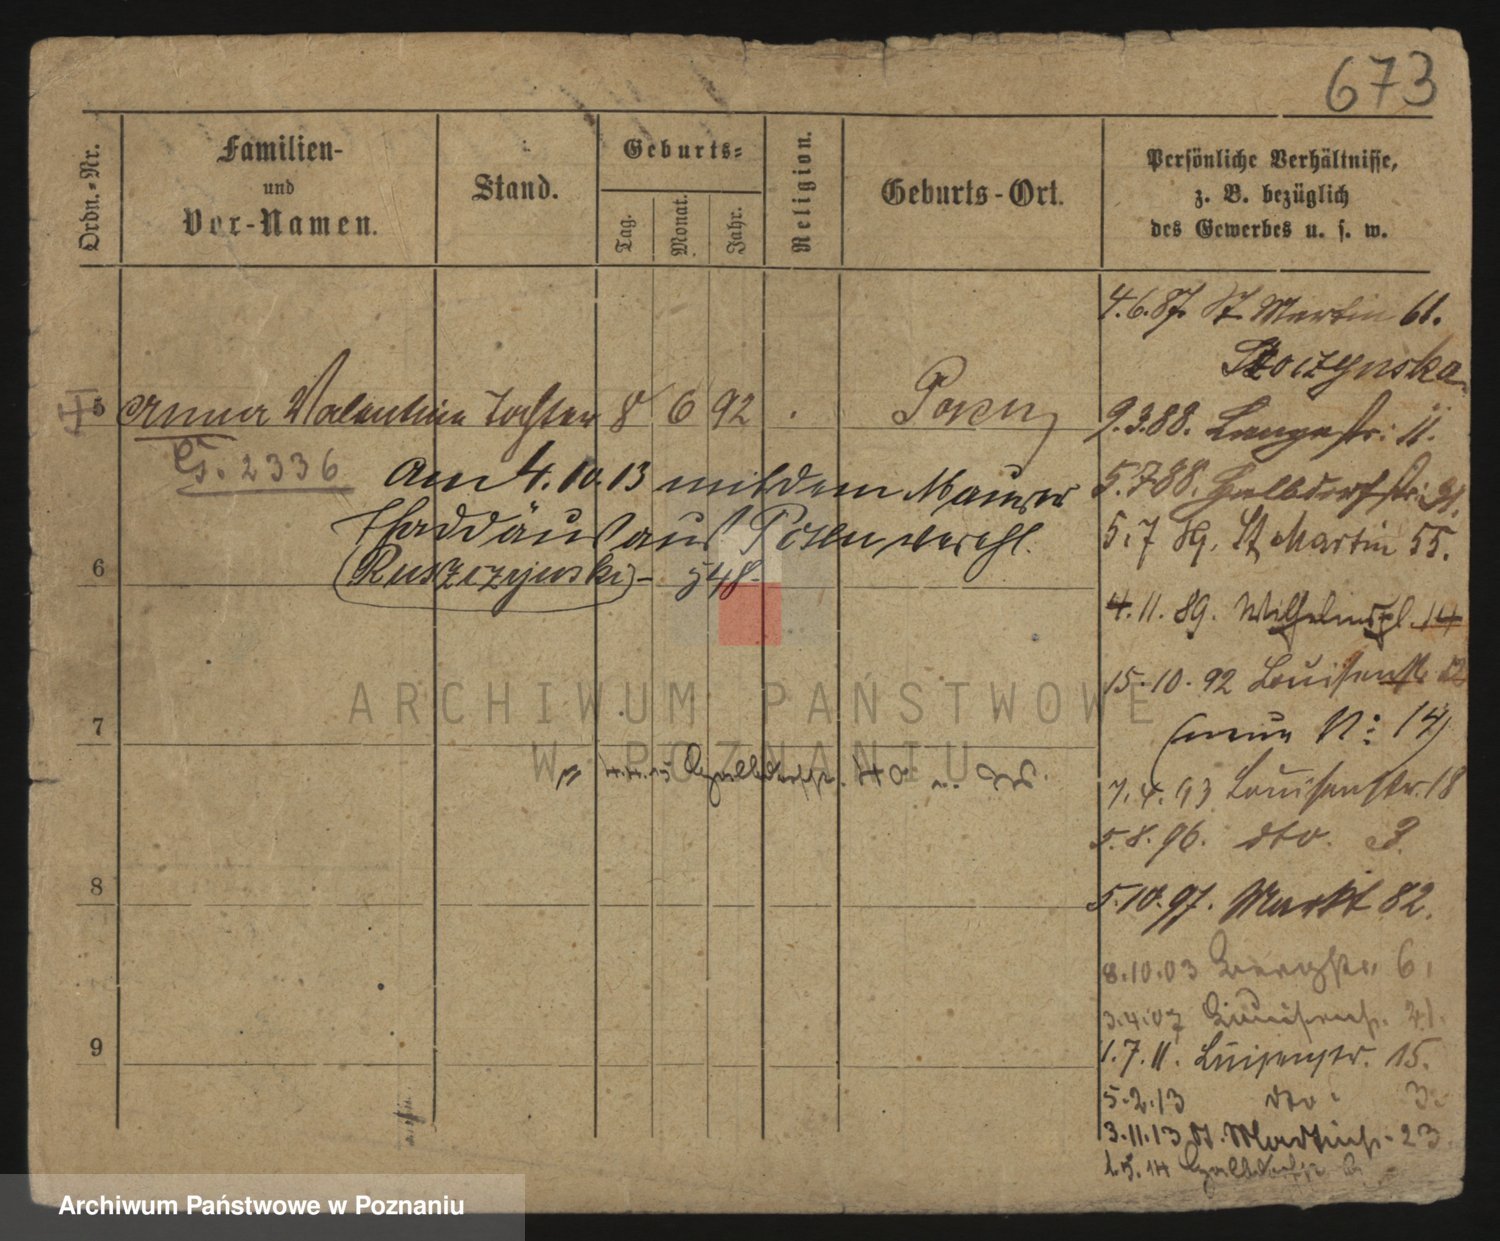 673
Ordn.-Nr.
Familien-
und
Vor-Namen.
Stand.
Geburts-
Tag.
Monat.
Jahr.
Religion.
Geburts-Ort.
Persönliche Verhältnisse,
z. B. bezüglich
des Gewerbes u. s. w.
5 Anna Valentine Tochter 8 6 92 Posen
G. 2336
Am 4.10.13 mit dem Maurer
Thaddäus aus Posen verehl.
(Ruszczynski) - 548-
6
7
4.4.15 Halbdorfstr. 40
8
9
4.6.87. St. Martin 61.
Skoczynska
9.3.88. Langestr: 11.
5.788. Halbdorfstr:
5.7 89. St Martin 55.
4.11.89. Wilhelmspl. 14
15.10.92 Louisenstr
(neue N: 14)
7.4.93 Louisenstr. 18
5.8.96. dto. 3.
5.10.97. Markt 82.
8.10.03 Bergstr. 6.
3.4.07 Luisenstr. 21.
1.7.11. Luisenstr. 15.
5.2.13 dto. 3.
3.11.13 St. Martinstr. 23
14 Halbdorfstr
ARCHIWUM PAŃSTWOWE
W POZNANIU
Archiwum Państwowe w Poznaniu